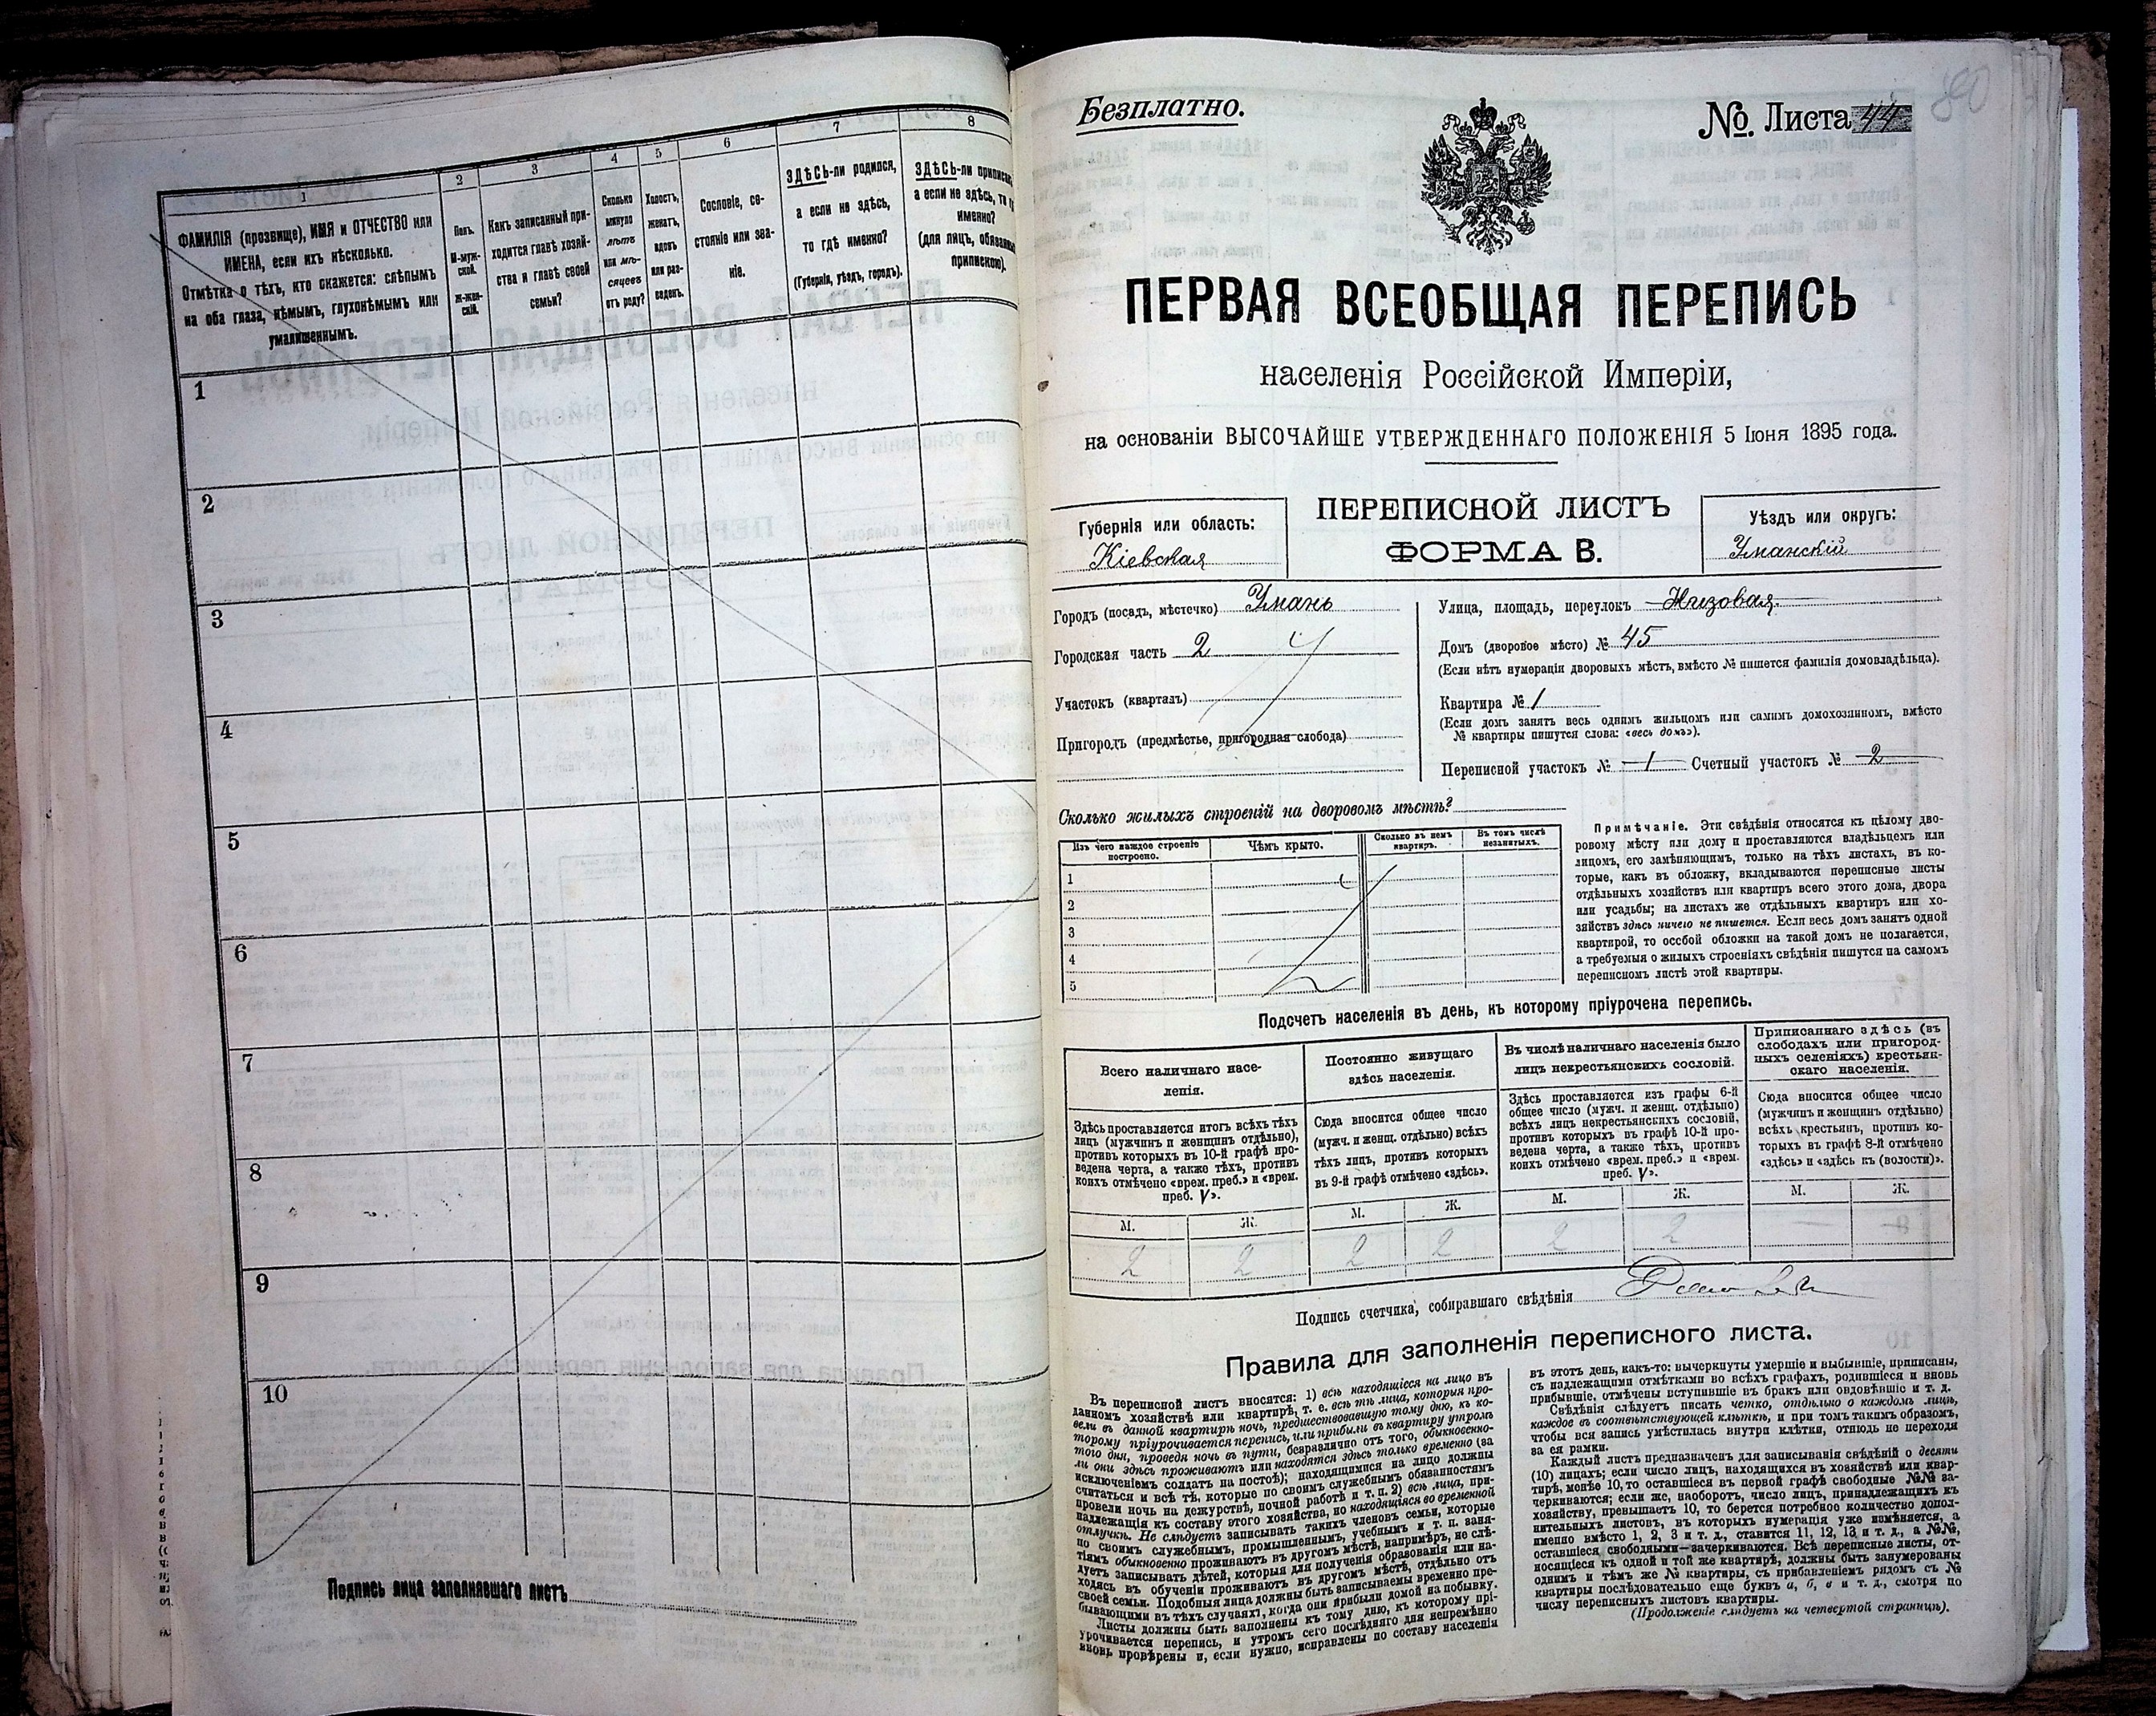 1
2
3
4
5
6
7
8
ФАМИЛІЯ (прозвище), ИМЯ и ОТЧЕСТВО или
ИМЕНА, если ихъ нѣсколько.
Отмѣтка о тѣхъ, кто окажется: слѣпымъ
на оба глаза, нѣмымъ, глухонѣмымъ или
умалишеннымъ.
Полъ.
М-муж-
ской.
Ж-жен-
скій.
Какъ записанный при-
ходится главѣ хозяй-
ства и главѣ своей
семьи?
Сколько
минуло
лѣтъ
или мѣ-
сяцевъ
отъ роду?
Холостъ,
женатъ,
вдовъ
или раз-
веденъ.
Сословіе, со-
стояніе или зва-
ніе.
ЗДѢСЬ-ли родился,
а если не здѣсь,
то гдѣ именно?
(Губернія, уѣздъ, городъ).
ЗДѢСЬ-ли приписанъ,
а если не здѣсь, то гдѣ
именно?
(для лицъ, обязанныхъ
припискою).
1
2
3
4
5
6
7
8
9
10
Подпись лица заполнявшаго листъ
Безплатно.
№ Листа 44
80
ПЕРВАЯ ВСЕОБЩАЯ ПЕРЕПИСЬ
населенія Россійской Имперіи,
на основаніи ВЫСОЧАЙШЕ УТВЕРЖДЕННАГО ПОЛОЖЕНІЯ 5 Іюня 1895 года.
Губернія или область:
Кіевская
ПЕРЕПИСНОЙ ЛИСТЪ
ФОРМА В.
Уѣздъ или округъ:
Уманскій
Городъ (посадъ, мѣстечко) Умань
Городская часть 2
Участокъ (кварталъ)
Пригородъ (предмѣстье, пригородная слобода)
Улица, площадь, переулокъ Низовая
Домъ (дворовое мѣсто) № 45
(Если нѣтъ нумераціи дворовыхъ мѣстъ, вмѣсто № пишется фамилія домовладѣльца).
Квартира № 1
(Если домъ занятъ весь однимъ жильцомъ или самимъ домохозяиномъ, вмѣсто
№ квартиры пишутся слова: «весь домъ»).
Переписной участокъ № 1 Счетный участокъ № 2
Сколько жилыхъ строеній на дворовомъ мѣстѣ?
Изъ чего каждое строеніе
построено.
Чѣмъ крыто.
Сколько въ немъ
квартиръ.
Въ томъ числѣ
незанятыхъ.
1
2
3
4
5
Примѣчаніе. Эти свѣдѣнія относятся къ цѣлому дво-
ровому мѣсту или дому и проставляются владѣльцемъ или
лицомъ, его замѣняющимъ, только на тѣхъ листахъ, въ ко-
торые, какъ въ обложку, вкладываются переписные листы
отдѣльныхъ хозяйствъ или квартиръ всего этого дома, двора
или усадьбы; на листахъ же отдѣльныхъ квартиръ или хо-
зяйствъ здѣсь ничего не пишется. Если весь домъ занятъ одной
квартирой, то особой обложки на такой домъ не полагается,
а требуемыя о жилыхъ строеніяхъ свѣдѣнія пишутся на самомъ
переписномъ листѣ этой квартиры.
Подсчетъ населенія въ день, къ которому пріурочена перепись.
Всего наличнаго насе-
ленія.
Постоянно живущаго
здѣсь населенія.
Въ числѣ наличнаго населенія было
лицъ некрестьянскихъ сословій.
Приписаннаго здѣсь (въ
слободахъ или пригород-
ныхъ селеніяхъ) крестьян-
скаго населенія.
Здѣсь проставляется итогъ всѣхъ тѣхъ
лицъ (мужчинъ и женщинъ отдѣльно),
противъ которыхъ въ 10-й графѣ про-
ведена черта, а также тѣхъ, противъ
коихъ отмѣчено «врем. преб.» и «врем.
преб. V».
Сюда вносится общее число
(мужч. и женщ. отдѣльно) всѣхъ
тѣхъ лицъ, противъ которыхъ
въ 9-й графѣ отмѣчено «здѣсь».
Здѣсь проставляется изъ графы 6-й
общее число (мужч. и женщ. отдѣльно)
всѣхъ лицъ некрестьянскихъ сословій,
противъ которыхъ въ графѣ 10-й про-
ведена черта, а также тѣхъ, противъ
коихъ отмѣчено «врем. преб.» и «врем.
преб. V».
Сюда вносится общее число
(мужчинъ и женщинъ отдѣльно)
всѣхъ крестьянъ, противъ ко-
торыхъ въ графѣ 8-й отмѣчено
«здѣсь» и «здѣсь къ (волости)».
М. Ж. М. Ж. М. Ж. М. Ж.
2 2 2 2 2 2 — —
Подпись счетчика, собиравшаго свѣдѣнія
Правила для заполненія переписного листа.
Въ переписной листъ вносятся: 1) всѣ находящіеся на лицо въ
данномъ хозяйствѣ или квартирѣ, т. е. всѣ тѣ лица, которыя про-
вели въ данной квартирѣ ночь, предшествовавшую тому дню, къ ко-
торому пріурочивается перепись, или прибыли въ квартиру утромъ
того дня, проведя ночь въ пути, безразлично отъ того, обыкновенно-
ли они здѣсь проживаютъ или находятся здѣсь только временно (за
исключеніемъ солдатъ на постоѣ); находящимися на лицо должны
считаться и всѣ тѣ, которые по своимъ служебнымъ обязанностямъ
провели ночь на дежурствѣ, ночной работѣ и т. п. 2) всѣ лица, при-
надлежащія къ составу этого хозяйства, но находящіяся во временной
отлучкѣ. Не слѣдуетъ записывать такихъ членовъ семьи, которые
по своимъ служебнымъ, промышленнымъ, учебнымъ и т. п. заня-
тіямъ обыкновенно проживаютъ въ другомъ мѣстѣ, напримѣръ, не слѣ-
дуетъ записывать дѣтей, которыя для полученія образованія или на-
ходясь въ обученіи проживаютъ въ другомъ мѣстѣ, отдѣльно отъ
своей семьи. Подобныя лица должны быть записываемы временно пре-
бывающими въ тѣхъ случаяхъ, когда они прибыли домой на побывку.
Листы должны быть заполнены къ тому дню, къ которому прі-
урочивается перепись, и утромъ сего послѣдняго дня непремѣнно
вновь провѣрены и, если нужно, исправлены по составу населенія
въ этотъ день, какъ-то: вычеркнуты умершіе и выбывшіе, приписаны,
съ надлежащими отмѣтками во всѣхъ графахъ, родившіеся и вновь
прибывшіе, отмѣчены вступившіе въ бракъ или овдовѣвшіе и т. д.
Свѣдѣнія слѣдуетъ писать четко, отдѣльно о каждомъ лицѣ,
каждое въ соотвѣтствующей клѣткѣ, и при томъ такимъ образомъ,
чтобы вся запись умѣстилась внутри клѣтки, отнюдь не переходя
за ея рамки.
Каждый листъ предназначенъ для записыванія свѣдѣній о десяти
(10) лицахъ; если число лицъ, находящихся въ хозяйствѣ или квар-
тирѣ, менѣе 10, то оставшіеся въ первой графѣ свободные №№ за-
черкиваются; если же, наоборотъ, число лицъ, принадлежащихъ къ
хозяйству, превышаетъ 10, то берется потребное количество допол-
нительныхъ листовъ, въ которыхъ нумерація уже измѣняется, а
именно вмѣсто 1, 2, 3 и т. д., ставится 11, 12, 13 и т. д., а №№,
оставшіеся свободными—зачеркиваются. Всѣ переписные листы, от-
носящіеся къ одной и той же квартирѣ, должны быть занумерованы
однимъ и тѣмъ же № квартиры, съ прибавленіемъ рядомъ съ №
квартиры послѣдовательно еще буквъ а, б, в и т. д., смотря по
числу переписныхъ листовъ квартиры.
(Продолженіе слѣдуетъ на четвертой страницѣ).